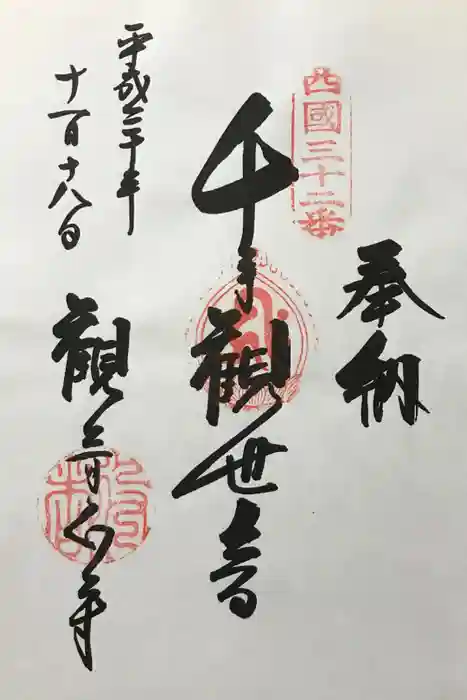 奉納
西國三十二番
千手觀世音
平成三十年
十一月十八日
觀音正寺